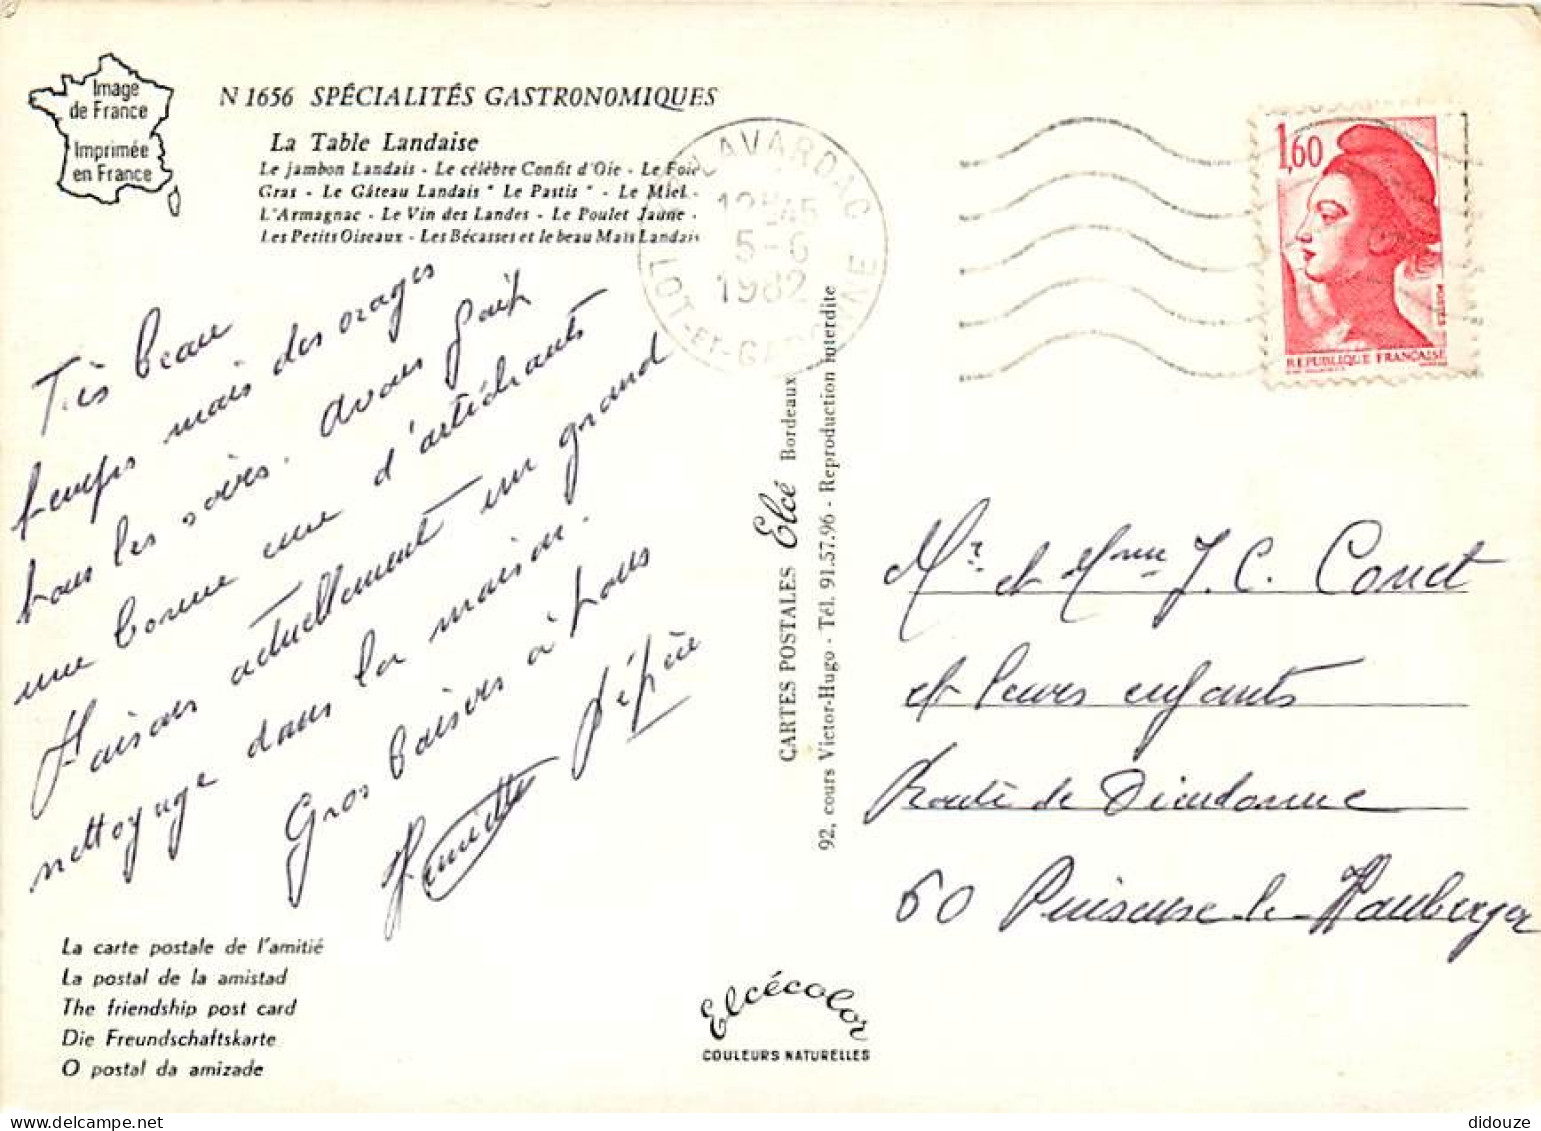 Image
de France
Imprimée
en France
N 1656 SPÉCIALITÉS GASTRONOMIQUES
La Table Landaise
Le jambon Landais - Le célèbre Confit d'Oie - Le Foie
Gras - Le Gâteau Landais " Le Pastis " - Le Miel -
L'Armagnac - Le Vin des Landes - Le Poulet Jaune -
Les Petits Oiseaux - Les Bécasses et le beau Maïs Landais
LAVARDAC
12H45
5-6
1982
LOT-ET-GARONNE
1,60
REPUBLIQUE FRANÇAISE
POSTES
Très beau
temps mais des orages
tous les soirs. Avons fait
une bonne cure d'artichauts
Faisons actuellement un grand
nettoyage dans la maison.
Gros baisers à tous
Pépère
CARTES POSTALES Elcé Bordeaux
92, cours Victor-Hugo - Tél. 91.57.96 - Reproduction interdite
Mr et Mme J. C.
et leurs enfants
Route de Dieudonne
60 Puiseux-le-Hauberger
La carte postale de l'amitié
La postal de la amistad
The friendship post card
Die Freundschaftskarte
O postal da amizade
Elcécolor
COULEURS NATURELLES
didouze